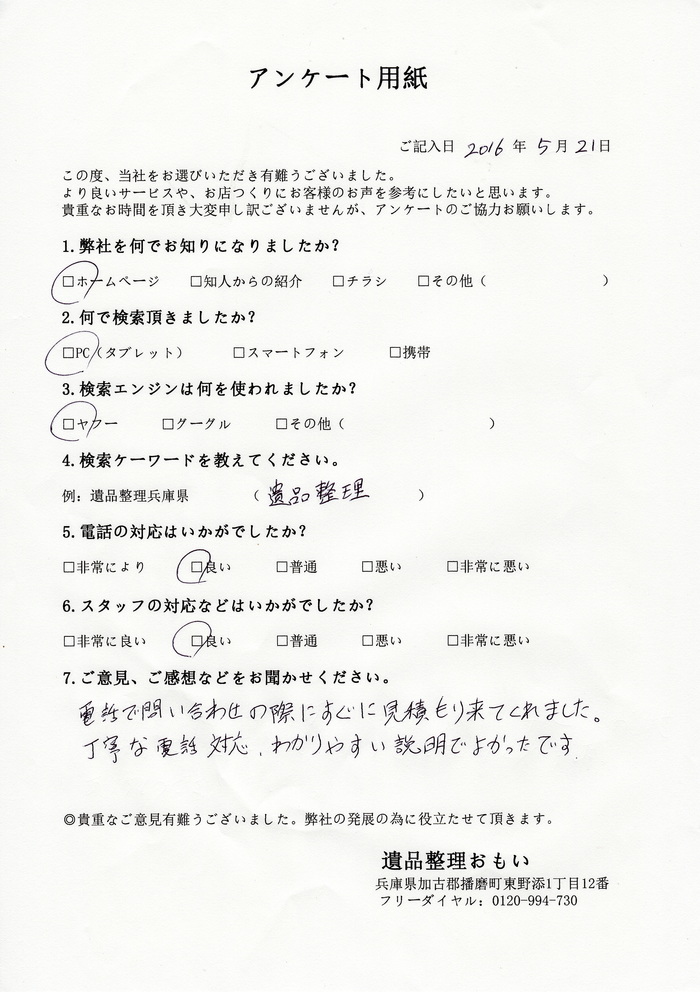 アンケート用紙
ご記入日 2016 年 5 月 21日
この度、当社をお選びいただき有難うございました。
より良いサービスや、お店つくりにお客様のお声を参考にしたいと思います。
貴重なお時間を頂き大変申し訳ございませんが、アンケートのご協力お願いします。
1.弊社を何でお知りになりましたか?
□ホームページ □知人からの紹介 □チラシ □その他（ ）
2.何で検索頂きましたか?
□PC（タブレット） □スマートフォン □携帯
3.検索エンジンは何を使われましたか?
□ヤフー □グーグル □その他（ ）
4.検索ケーワードを教えてください。
例: 遺品整理兵庫県 （ 遺品整理 ）
5.電話の対応はいかがでしたか?
□非常により □良い □普通 □悪い □非常に悪い
6.スタッフの対応などはいかがでしたか?
□非常に良い □良い □普通 □悪い □非常に悪い
7.ご意見、ご感想などをお聞かせください。
電話で問い合わせの際にすぐに見積もり来てくれました。
丁寧な電話対応、わかりやすい説明でよかったです
◎貴重なご意見有難うございました。弊社の発展の為に役立たせて頂きます。
遺品整理おもい
兵庫県加古郡播磨町東野添1丁目12番
フリーダイヤル: 0120-994-730